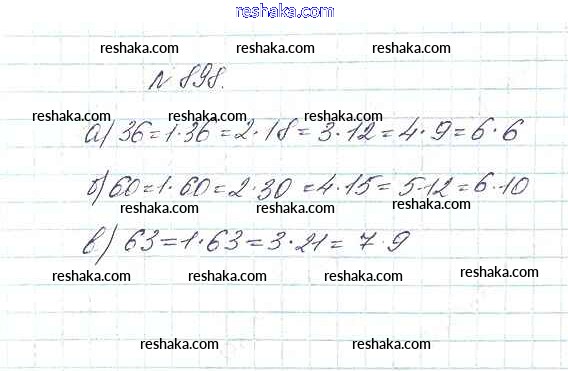 reshaka.com
reshaka.com reshaka.com reshaka.com
№ 898.
reshaka.com reshaka.com reshaka.com
а) 36=1·36=2·18=3·12=4·9=6·6
б) 60=1·60=2·30=4·15=5·12=6·10
reshaka.com reshaka.com reshaka.com
в) 63=1·63=3·21=7·9
reshaka.com reshaka.com reshaka.com reshaka.com
reshaka.com reshaka.com reshaka.com